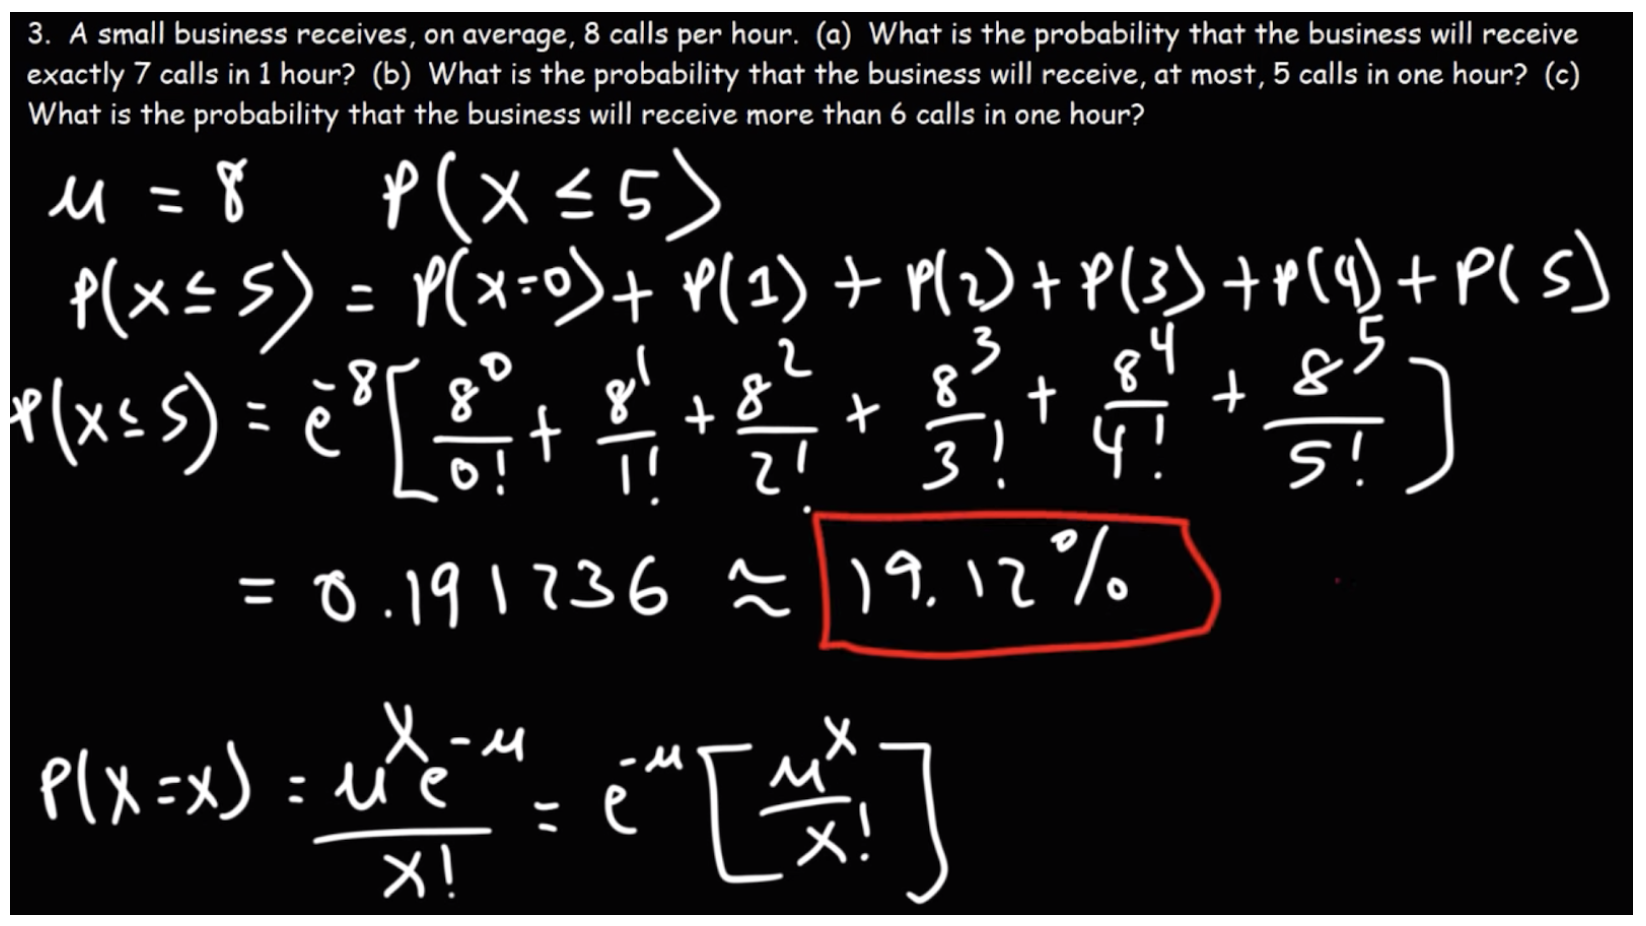 3. A small business receives, on average, 8 calls per hour. (a) What is the probability that the business will receive
exactly 7 calls in 1 hour? (b) What is the probability that the business will receive, at most, 5 calls in one hour? (c)
What is the probability that the business will receive more than 6 calls in one hour?
μ = 8 P(x ≤ 5)
P(x ≤ 5) = P(x=0) + P(1) + P(2) + P(3) + P(4) + P(5)
P(x ≤ 5) = e^-8 [ 8^0/0! + 8^1/1! + 8^2/2! + 8^3/3! + 8^4/4! + 8^5/5! ]
= 0.191236 ≈ 19.12%
P(X=x) = μ^x e^-μ / x! = e^-μ [ μ^x / x! ]